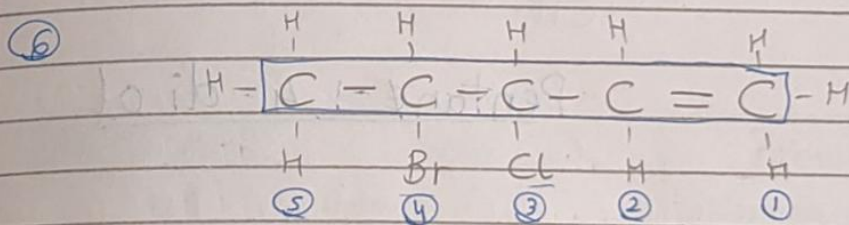 6
H H H H H
H - C - C - C - C = C - H
H Br Cl H H
5 4 3 2 1